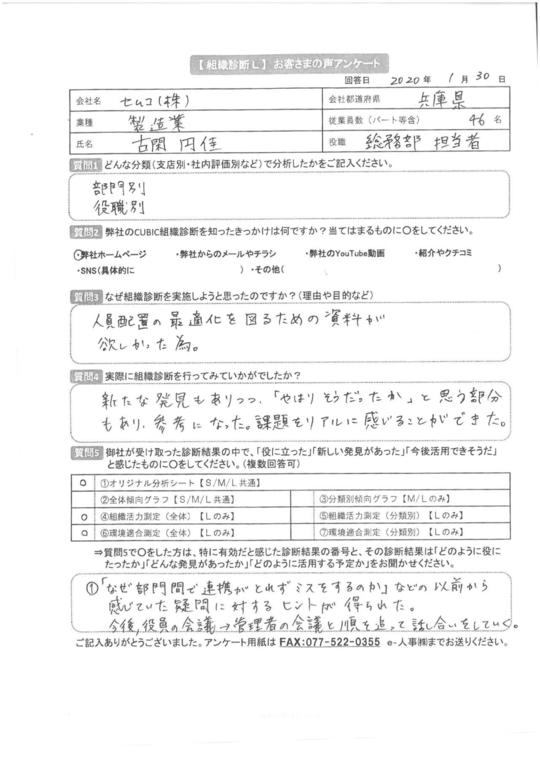 【組織診断L】お客さまの声アンケート
回答日 2020年 1月 30日
会社名 セムコ(株) 会社都道府県 兵庫県
業種 製造業 従業員数(パート等含) 46名
氏名 古閑 円佳 役職 総務部 担当者
質問1 どんな分類(支店別・社内評価別など)で分析したかをご記入ください。
部門別
役職別
質問2 弊社のCUBIC組織診断を知ったきっかけは何ですか?当てはまるものに○をしてください。
・弊社ホームページ ・弊社からのメールやチラシ ・弊社のYouTube動画 ・紹介やクチコミ
・SNS(具体的に ) ・その他( )
質問3 なぜ組織診断を実施しようと思ったのですか?(理由や目的など)
人員配置の最適化を図るための資料が
欲しかった為。
質問4 実際に組織診断を行ってみていかがでしたか?
新たな発見もありつつ、「やはりそうだったか」と思う部分
もあり、参考になった。課題をリアルに感じることができた。
質問5 御社が受け取った診断結果の中で、「役に立った」「新しい発見があった」「今後活用できそうだ」
と感じたものに○をしてください。(複数回答可)
○ ①オリジナル分析シート【S/M/L共通】
②全体傾向グラフ【S/M/L共通】 ③分類別傾向グラフ【M/Lのみ】
○ ④組織活力測定(全体)【Lのみ】 ⑤組織活力測定(分類別)【Lのみ】
○ ⑥環境適合測定(全体)【Lのみ】 ⑦環境適合測定(分類別)【Lのみ】
⇒質問5で○をした方は、特に有効だと感じた診断結果の番号と、その診断結果は「どのように役に
たったか」「どんな発見があったか」「どのように活用する予定か」をお聞かせください。
①「なぜ部門間で連携がとれずミスをするのか」などの以前から
感じていた疑問に対するヒントが得られた。
今後、役員の会議→管理者の会議と順を追って話し合いをしていく。
ご記入ありがとうございました。アンケート用紙は FAX:077-522-0355 e-人事㈱までお送りください。